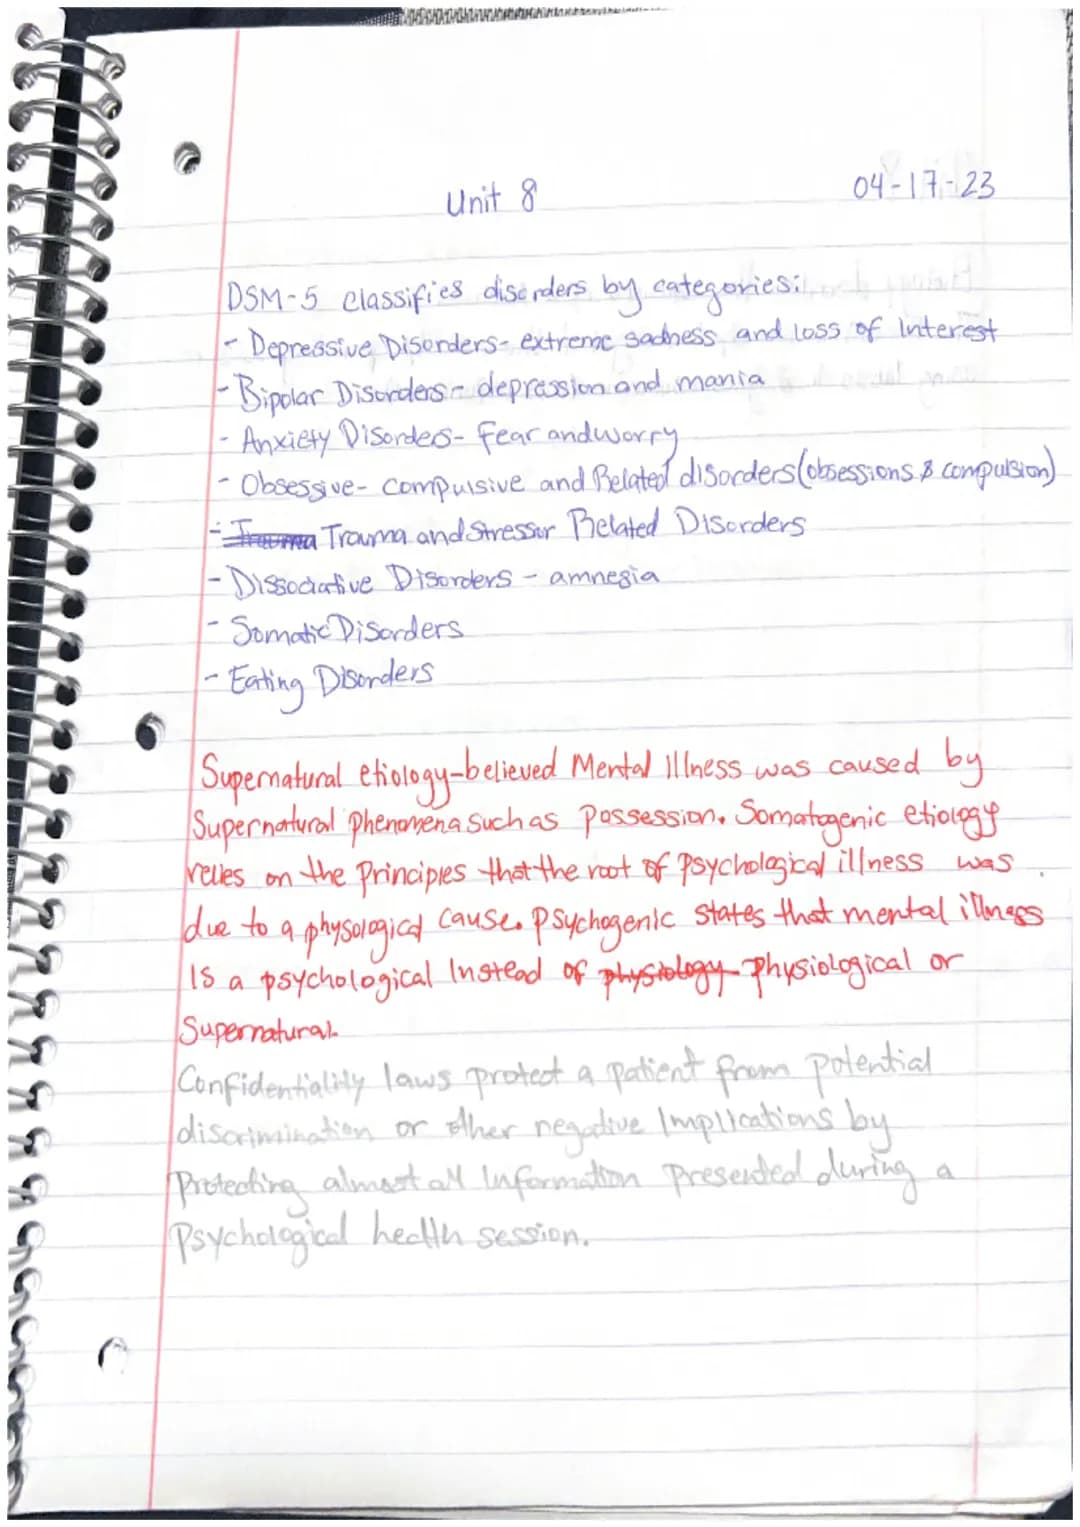 Unit 8 04-17-23
DSM-5 classifies disorders by categories:
- Depressive Disorders- extreme sadness and loss of Interest
- Bipolar Disorders- depression and mania
- Anxiety Disorders- fear and worry
- Obsessive- compulsive and Related disorders (obsessions & compulsion)
- Trauma Trauma and Stressor Related Disorders
- Dissociative Disorders - amnesia
- Somatic Disorders
- Eating Disorders
Supernatural etiology-believed Mental illness was caused by
Supernatural phenomena such as possession. Somatogenic etiology
relies on the Principles that the root of psychological illness was
due to a physological cause. Psychogenic states that mental illness
Is a psychological Instead of physiology Physiological or
Supernatural.
Confidentiality laws protect a patient from potential
discrimination or other negative Implications by
Protecting almost all Information presented during a
Psychological health session.